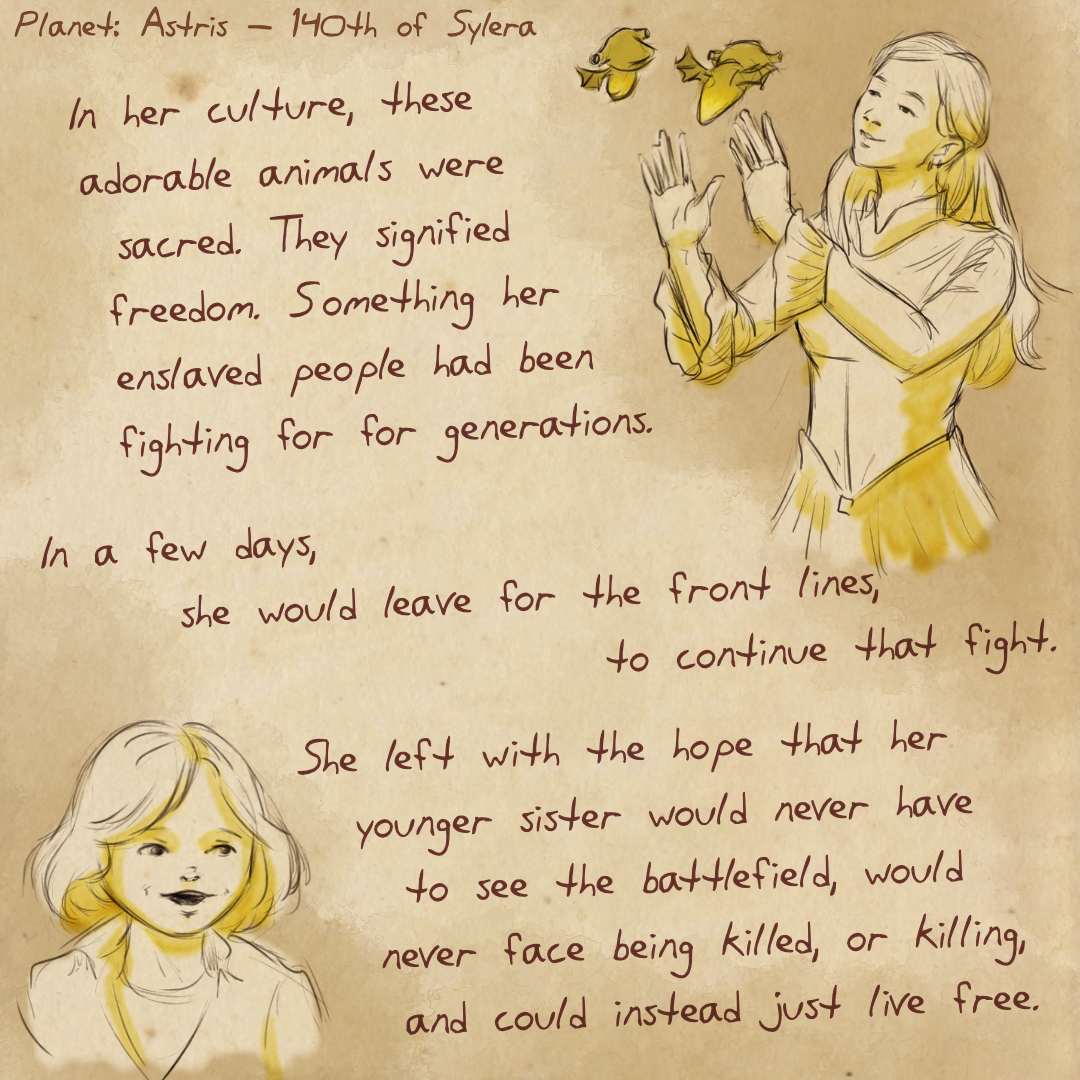 Planet: Astris – 140th of Sylera
In her culture, these
adorable animals were
sacred. They signified
freedom. Something her
enslaved people had been
fighting for for generations.
In a few days,
she would leave for the front lines,
to continue that fight.
She left with the hope that her
younger sister would never have
to see the battlefield, would
never face being killed, or killing,
and could instead just live free.